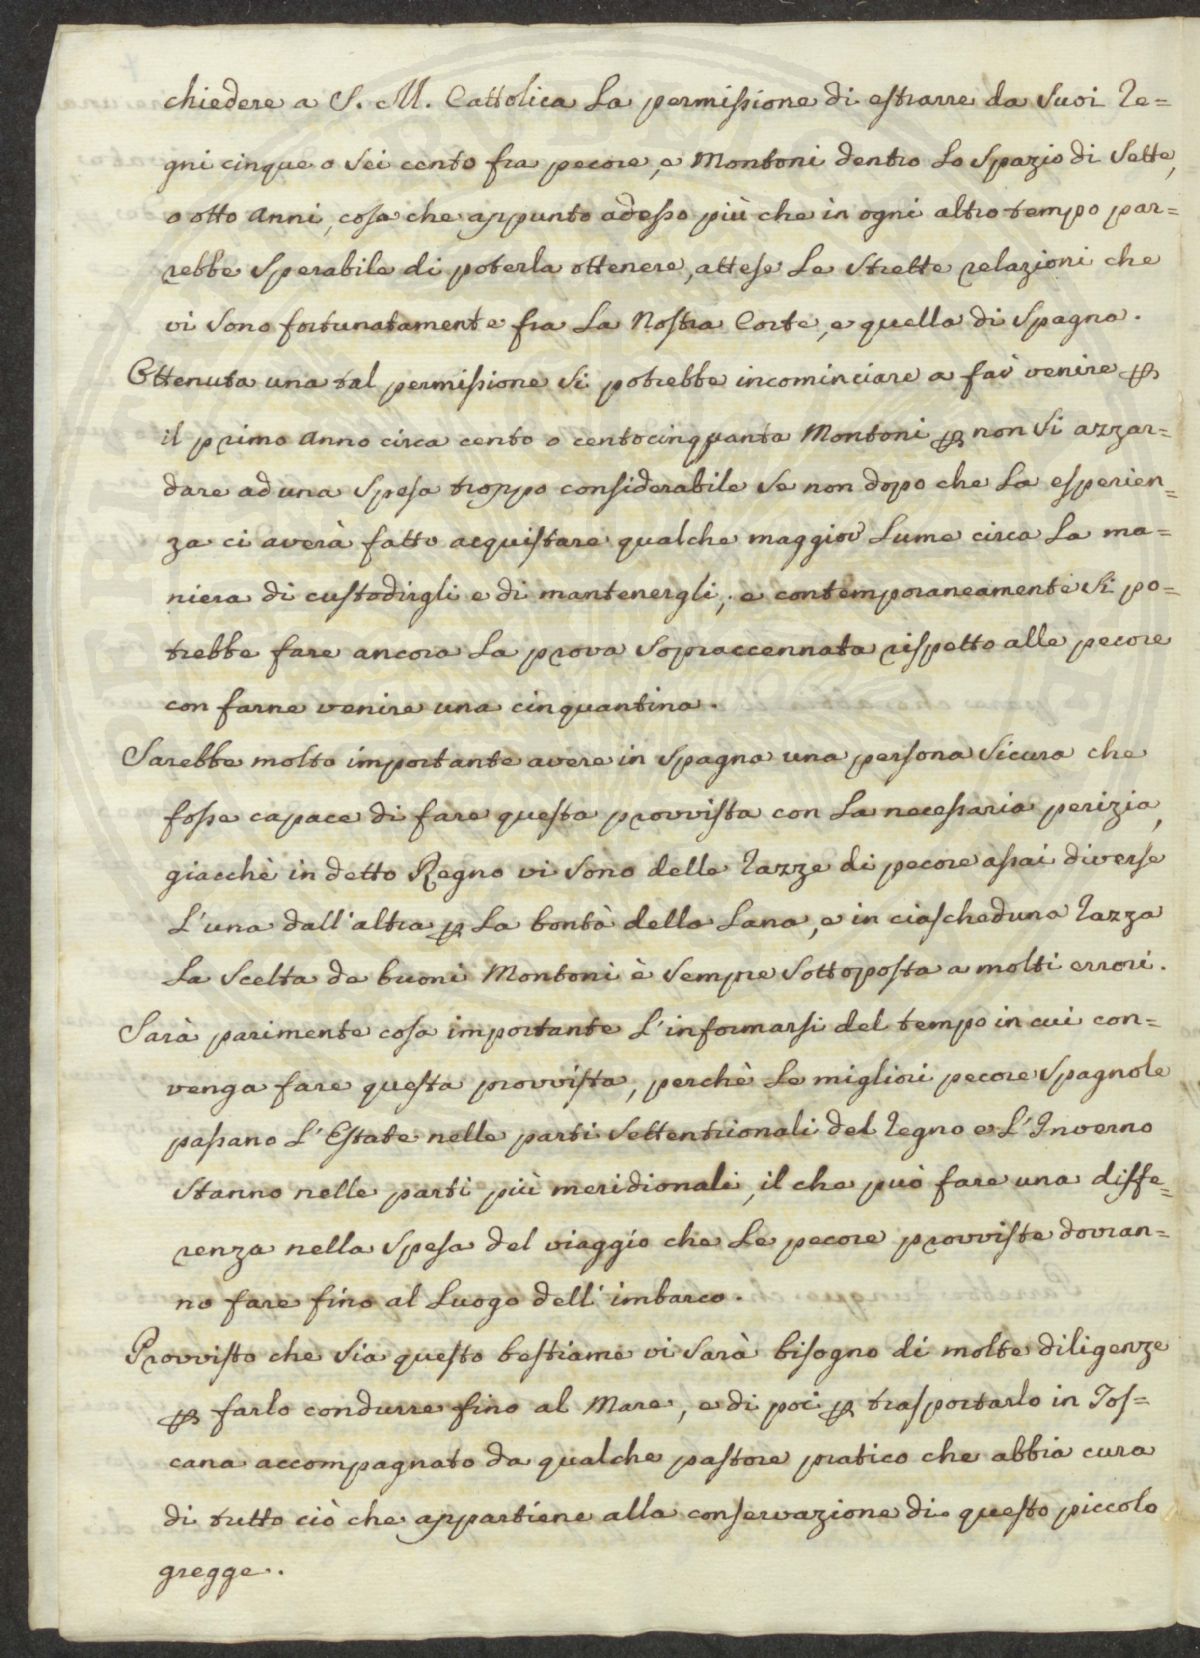 chiedere a S. M. Cattolica la permissione di estrarre da suoi Re=
gni cinque o sei cento fra pecore, e Montoni dentro lo spazio di sette,
o otto Anni, cosa che appunto adesso più che in ogni altro tempo par=
rebbe sperabile di poterla ottenere, attese le strette relazioni che
vi sono fortunatamente fra la Nostra Corte, e quella di Spagna.
Ottenuta una tal permissione si potrebbe incominciare a far venire ꝑ
il primo Anno circa cento o centocinquanta Montoni ꝑ non si azzar=
dare ad una spesa troppo considerabile se non dopo che la esperien=
za ci averà fatto acquistare qualche maggior lume circa la ma=
niera di custodirgli e di mantenergli; e contemporaneamente si po=
trebbe fare ancora la prova sopraccennata rispetto alle pecore
con farne venire una cinquantina.
Sarebbe molto importante avere in Spagna una persona sicura che
fosse capace di fare questa provvista con la necessaria perizia,
giacchè in detto Regno vi sono delle razze di pecore assai diverse
l'una dall'altra ꝑ la bontà della lana, e in ciascheduna razza
la scelta de buoni Montoni è sempre sottoposta a molti errori.
Sarà parimente cosa importante l'informarsi del tempo in cui con=
venga fare questa provvista, perchè le migliori pecore Spagnole
passano l'Estate nelle parti settentrionali del regno e l'Inverno
stanno nelle parti più meridionali, il che può fare una diffe=
renza nella spesa del viaggio che le pecore provviste dovran=
no fare fino al luogo dell'imbarco.
Provvisto che sia questo bestiame vi sarà bisogno di molte diligenze
ꝑ farlo condurre fino al Mare, e di poi ꝑ trasportarlo in Tos=
cana accompagnato da qualche pastore pratico che abbia cura
di tutto ciò che appartiene alla conservazione di questo piccolo
gregge.